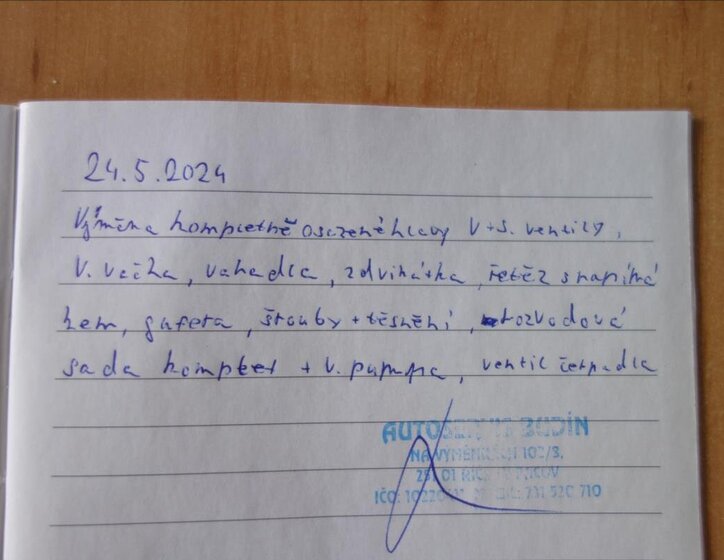 24.5.2024
Výměna kompletně osazené hlavy V+S. ventily,
V. vačka, vahadla, zdvihátka, řetěz s napíná
kem, gufera, šrouby + těsnění, rozvodová
sada komplet + V. pumpa, ventil čerpadla
AUTOSERVIS BUDÍN
NA VÝMĚNKÁCH 102/3,
251 01
IČO: 731 520 710